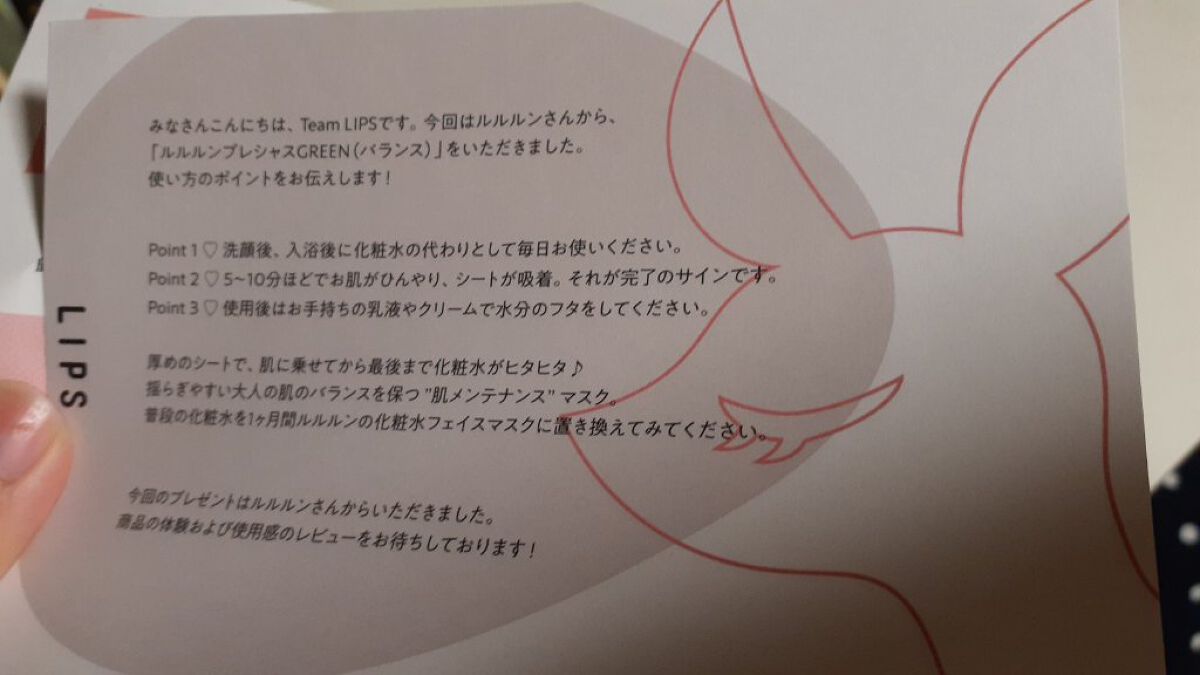 みなさんこんにちは、Team LIPSです。今回はルルルンさんから、
「ルルルンプレシャスGREEN（バランス）」をいただきました。
使い方のポイントをお伝えします！
Point 1♡洗顔後、入浴後に化粧水の代わりとして毎日お使いください。
Point 2♡5〜10分ほどでお肌がひんやり、シートが吸着。それが完了のサインです。
Point 3♡使用後はお手持ちの乳液やクリームで水分のフタをしてください。
厚めのシートで、肌に乗せてから最後まで化粧水がヒタヒタ♪
揺らぎやすい大人の肌のバランスを保つ"肌メンテナンス"マスク。
普段の化粧水を1ヶ月間ルルルンの化粧水フェイスマスクに置き換えてみてください。
今回のプレゼントはルルルンさんからいただきました。
商品の体験および使用感のレビューをお待ちしております！
LIPS